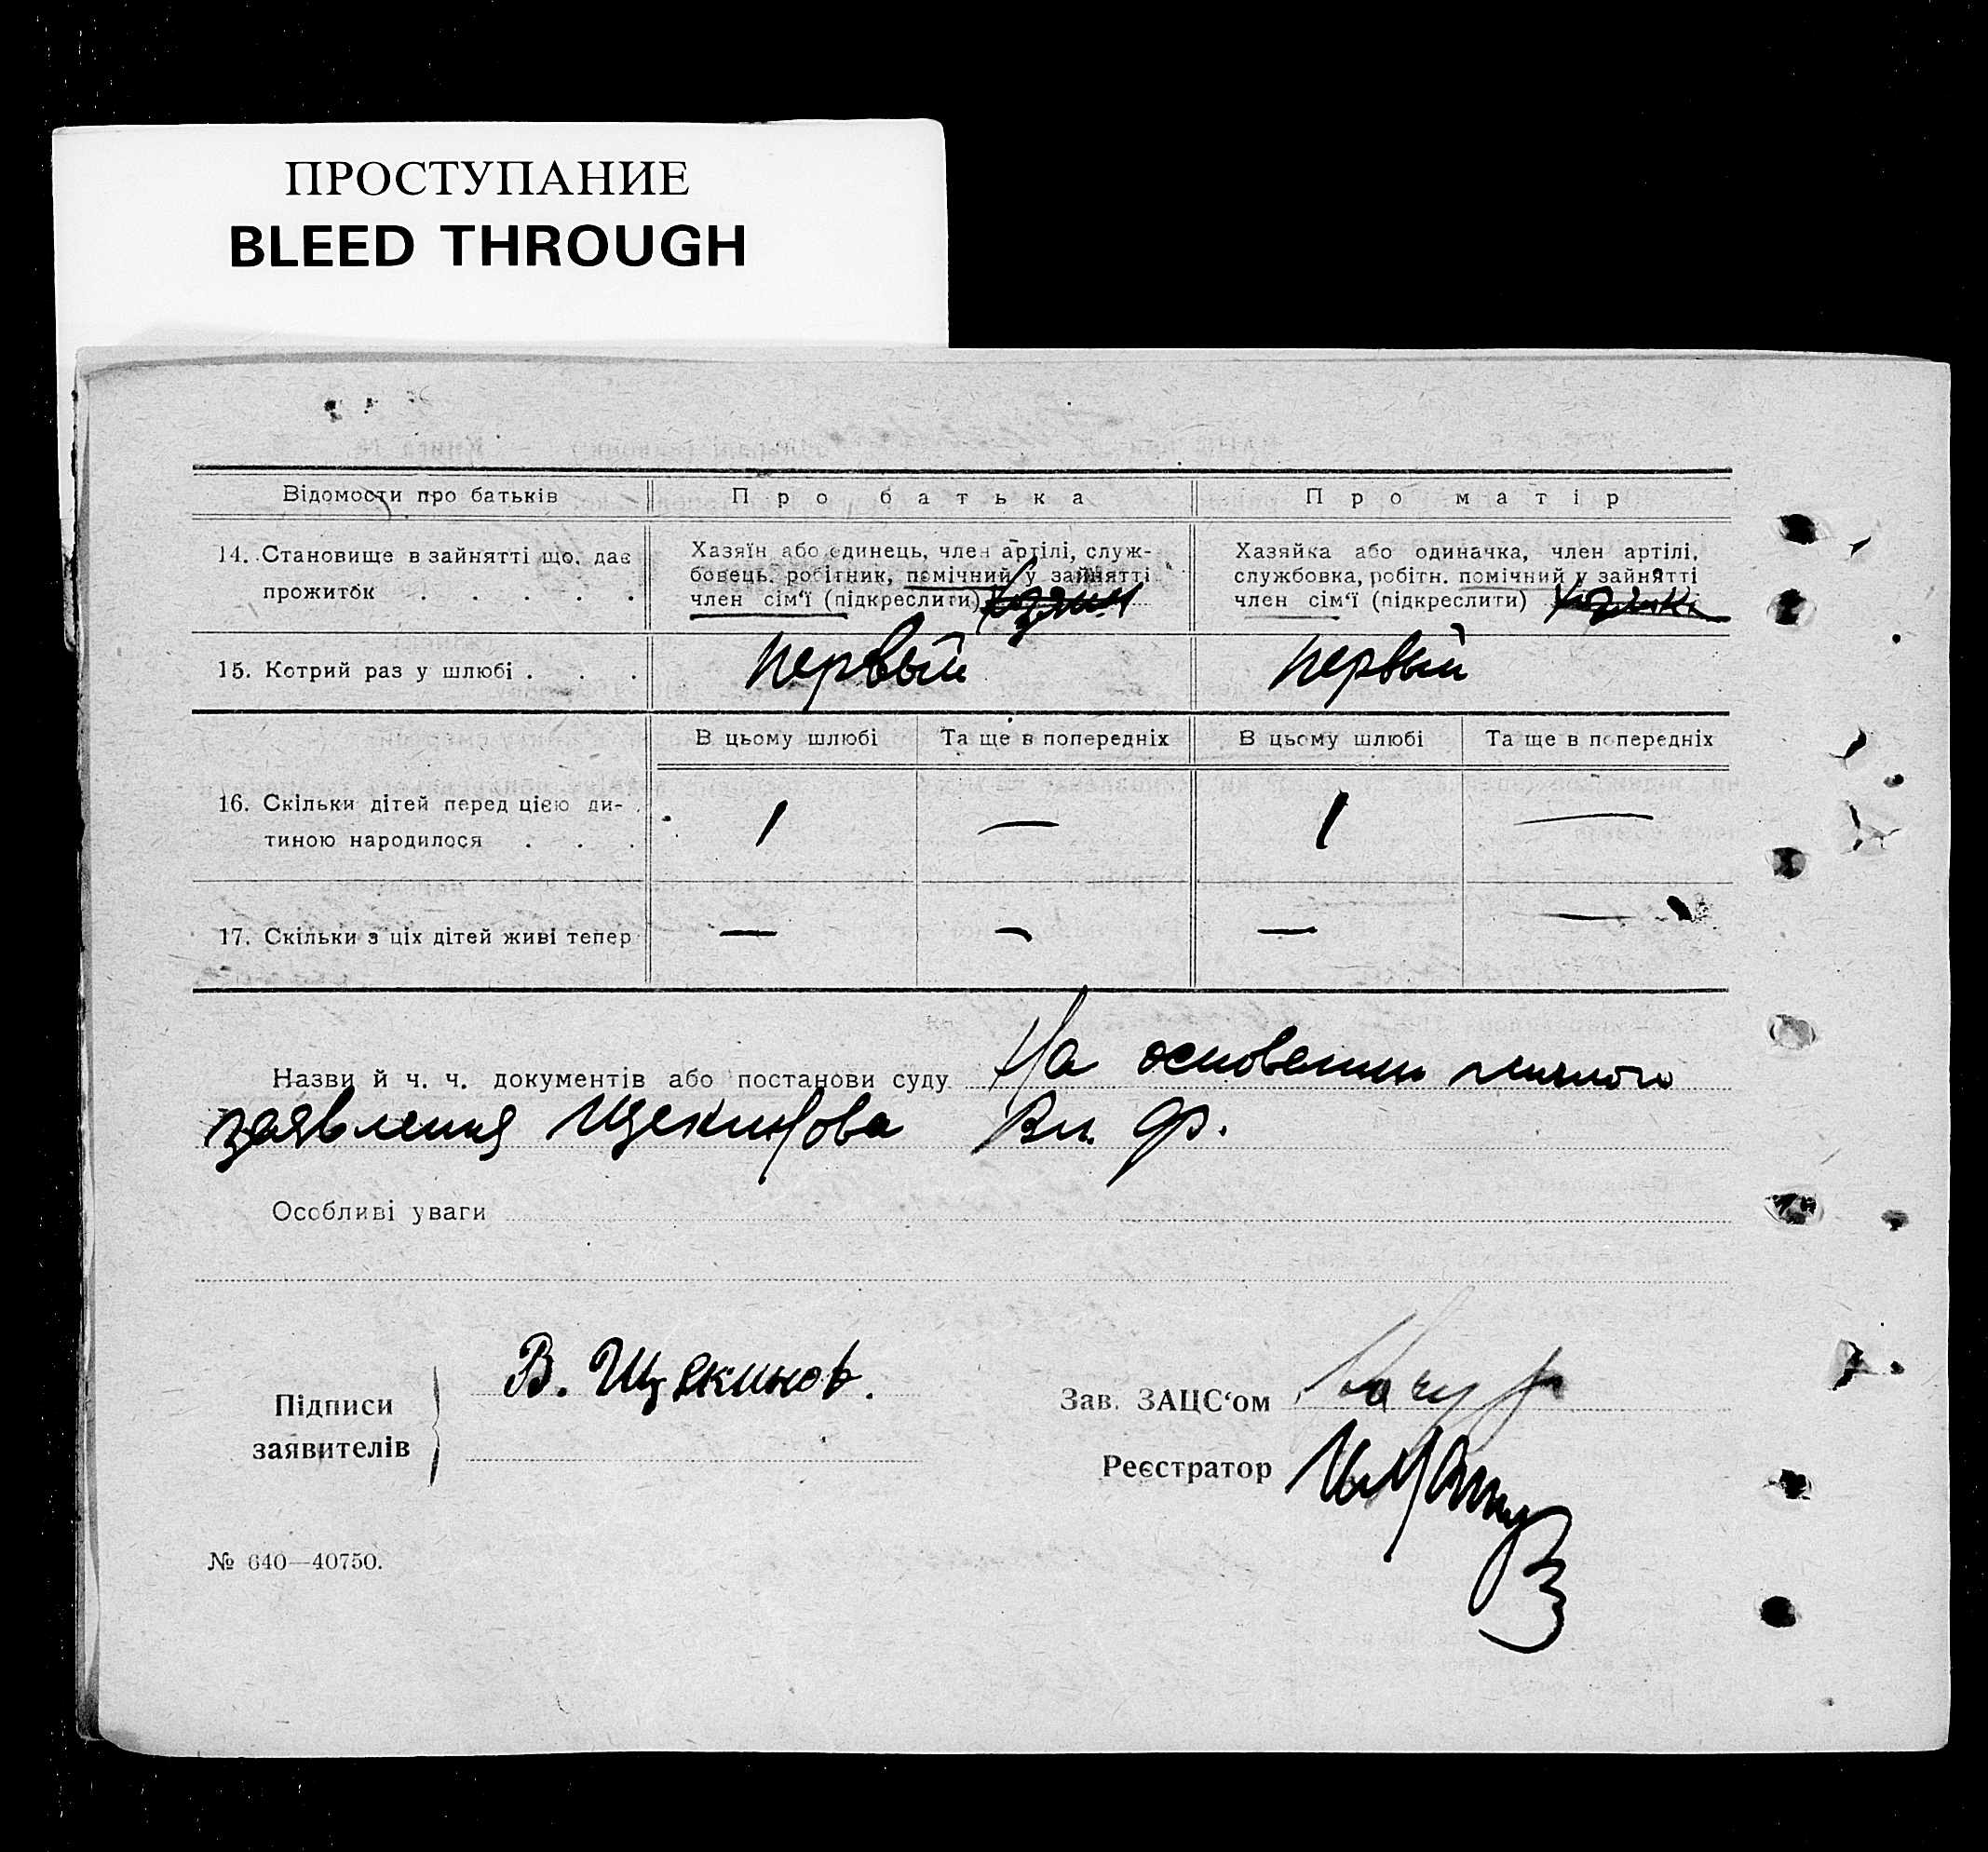 ПРОСТУПАНИЕ
BLEED THROUGH
Відомости про батьків Про батька Про матір
14. Становище в зайнятті що дає прожиток . . . . .
Хазяїн або єдинець, член артілі, служ-
бовець, робітник, помічний у зайнятті
член сім'ї (підкреслити) хозяин
Хазяйка або одиначка, член артілі,
службовка, робітн. помічний у зайнятті
член сім'ї (підкреслити)
15. Котрий раз у шлюбі . . . первый первый
В цьому шлюбі Та ще в попередніх В цьому шлюбі Та ще в попередніх
16. Скільки дітей перед цією ди-
тиною народилося . . . 1 — 1 —
17. Скільки з ціх дітей живі тепер — — — —
Назви й ч. ч. документів або постанови суду На основании личного
заявления Щекинова Вл. Ф.
Особливі уваги
Підписи
заявителів
В. Щекинов.
Зав. ЗАЦС'ом
Реєстратор
№ 640—40750.